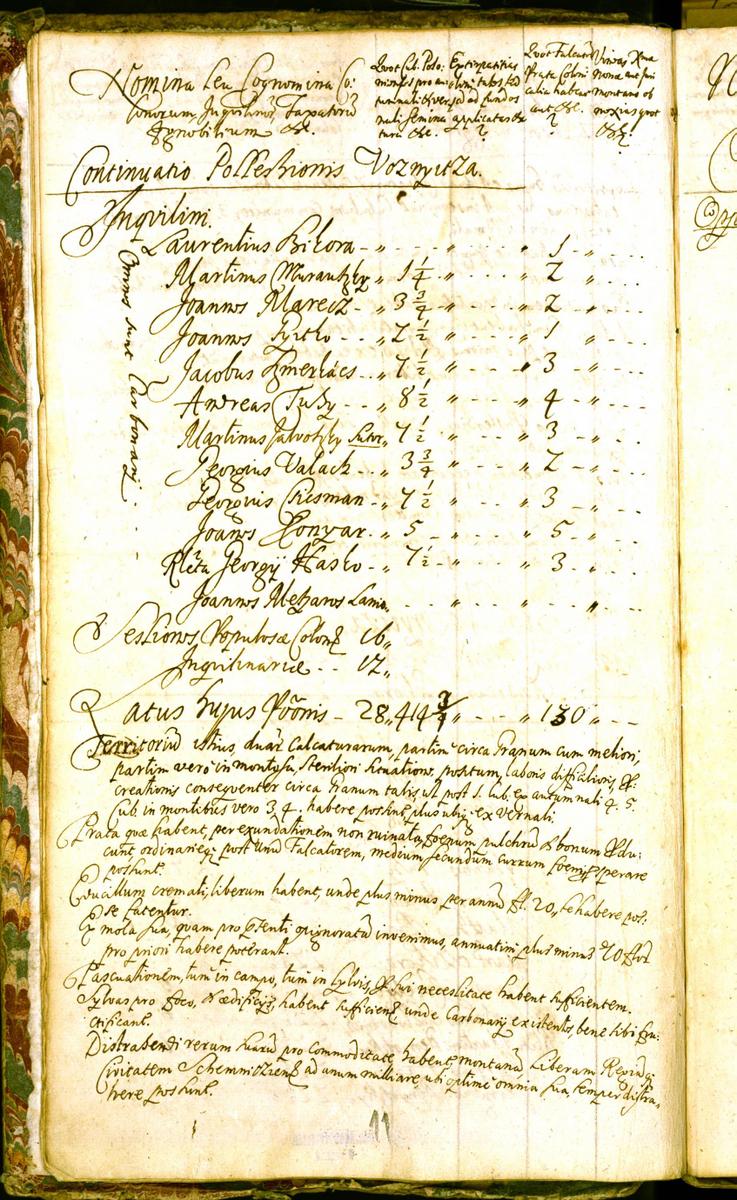 Nomina seu Cognomina Co:
lonorum, Inquilinor, Taxatorũ
Ignobilium &c.
Quot Cub. Poso:
minus pro au
tumnali diversa
nuli semina applicatas &c
turũ &c. ?
Quot Falcatorũ
Prata Coloni
calia habeat
aut &c. ?
Vineas
montano ob
noxias quot
&c ?
Continuatio Possessionis Voznyitza.
Inqvilini.
Omnes sunt Carbonarij
Laurentius Bikora - „ - - - „ - - - „ 1 „ - - -
Martinus Murantzky „ 1 1/4 „ - - - „ 2 „ - - -
Joannes Marecz - „ 3 3/4 „ - - - „ 2 „ - - -
Joannes Pytlo - - „ 2 1/2 „ - - - „ 1 „ - - -
Jacobus Hmerlács - - „ 7 1/2 „ - - - „ 3 „ - - -
Andreas Tusy - - „ 8 1/2 „ - - - „ 4 „ - - -
Martinus Jalvotzky Sutor „ 7 1/2 „ - - - „ 3 „ - - -
Georgius Valach - - „ 3 3/4 „ - - - „ 2 „ - - -
Georgius Chesman - „ 7 1/2 „ - - - „ 3 „ - - -
Joannes Konyar - „ 5 - „ - - - „ 5 „ - - -
Rlcta Georgij Hasko - „ 7 1/2 - „ - - - „ 3 „ - - -
Joannes Meszaros Lanio „ - - - „ - - - „ - - -
Sessiones Populosæ Colonl 16„
Inquilinariæ - - 12„
Latus hujus Poõnis - 28„ 414 3/4 „ - - - „ 130 „ - - -
Territoriũ istius, duar Calcaturarum, partim circa Granum cum meliori,
partim vero in montosa, steriliori situatione, positum, laboris difficilioris, &
creationis consequenter circa Granum talis ut post 1. Cub. ex autumnali 4. 5.
Cub. in montibus vero 3. 4. habere possint, plus ubiq ex vernali.
Prata quæ habent, per exundationem non ruinata, foenum pulchrũ & bonum produ:
cunt, ordinarieq post unũ Falcatorem, medium secundum currum foeni sperare
possunt.
Educillum cremati, liberum habent, unde plus minus per annũ fl. 20„ se habere pos:
se fatentur.
Ex mola sua, quam pro psenti oppignoratã invenimus, annuatim plus minus 40 flor
pro priori habere poterant.
Pascuationem, tum in campo, tum in Sylvis, pro sui necessitate habent sufficientem.
Sylvas pro foco, & ædificijs, habent sufficiens, unde Carbonarij existentes, bene sibi fru:
ctificant.
Distrahendi rerum suarũ pro commoditate habent, montanã Liberam Regiãq
Civitatem Schemnicziens ad unum milliare, ubi optime omnia sua, semper distra,
here possunt.
11